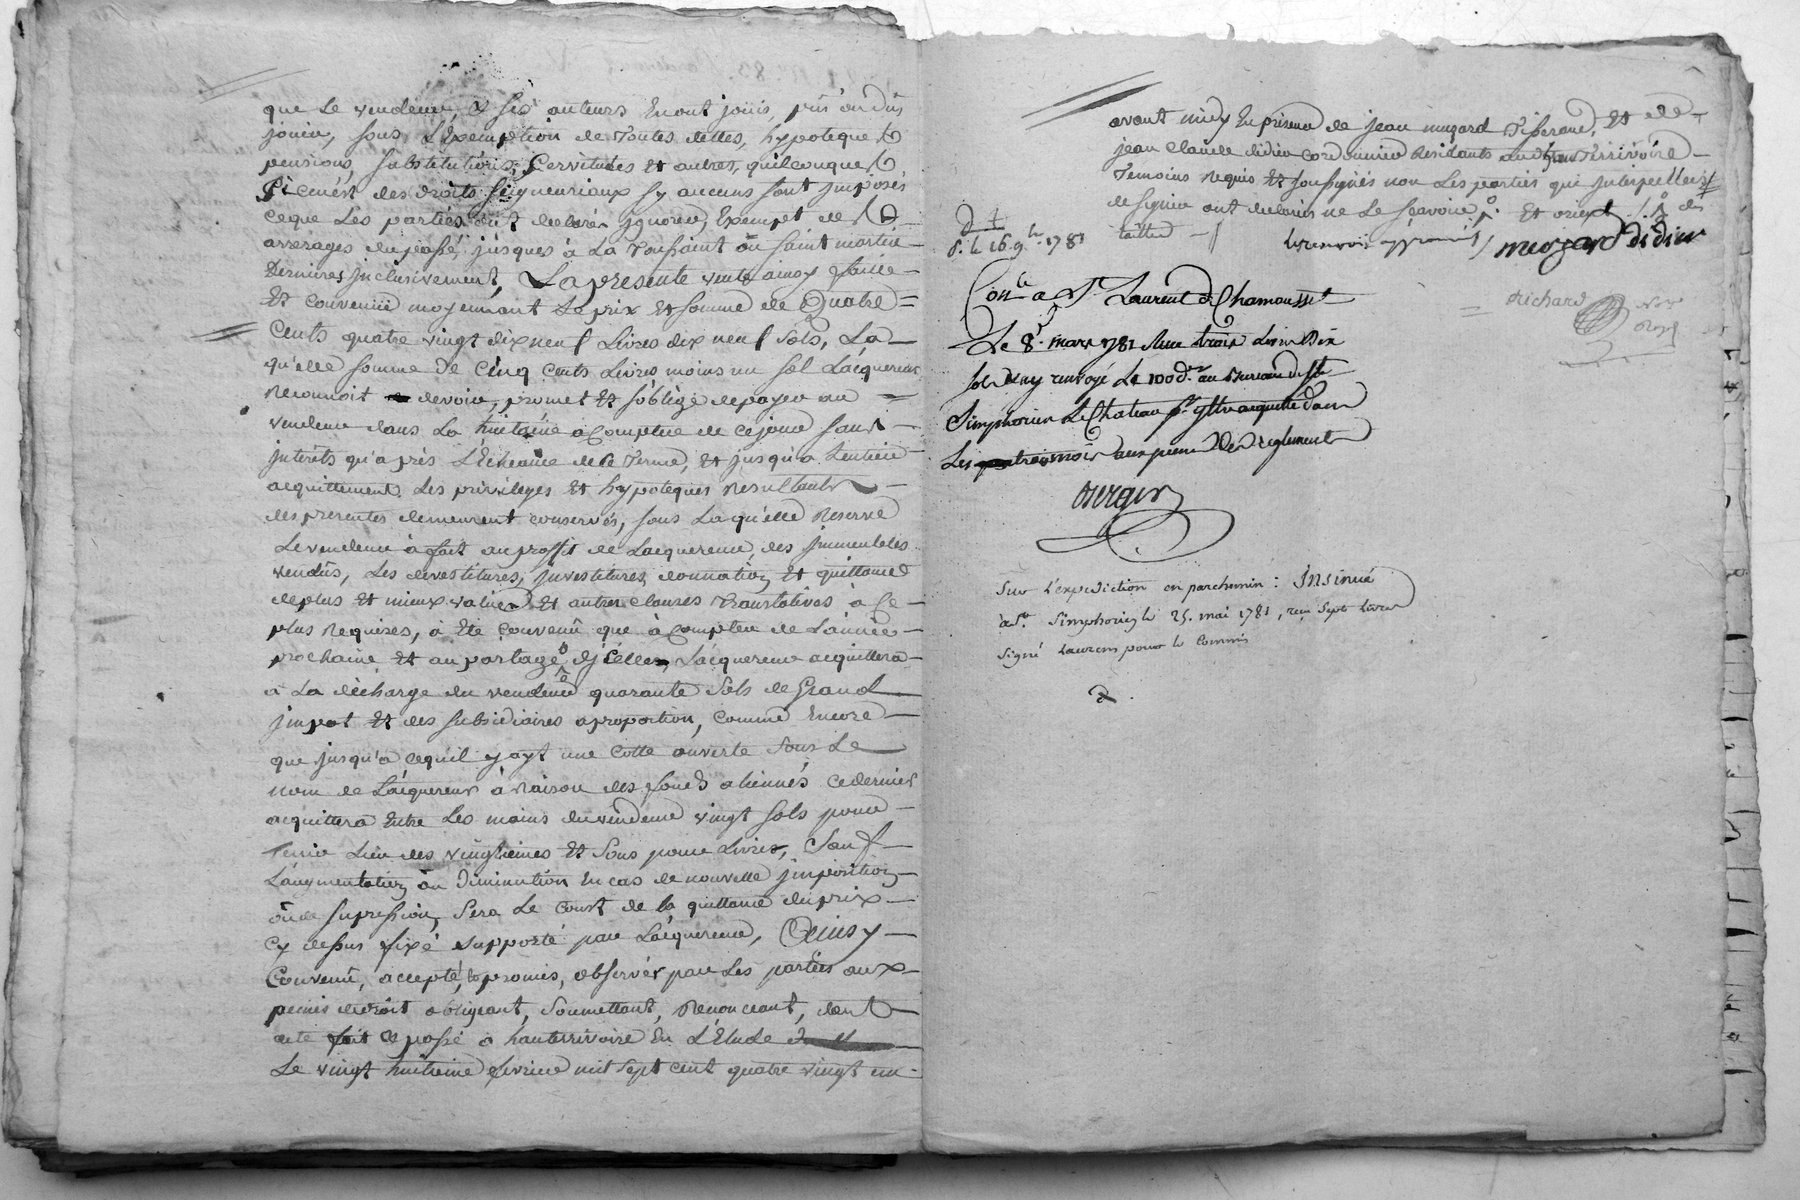 que le vendeur, & ses auteurs en ont joüis, pris ou dus
jouir, sous l'exemption de toutes dettes, hypoteques
pensions, substitutions, servitudes et autres, quelconques
si ce n'est des droits seigneuriaux sy aucuns sont imposés
ceque les parties ont declarés ignorer, Exempt de
arrerages du passé, jusques à la Toussaint ou saint martin
dernieres inclusivement, La presente vente ainsy faite
Et convenüe moyennant le prix et somme de Quatre =
cents quatre vingt dix neuf Livres dix neuf sols, La
qu'elle somme de cinq cents Livres moins un sol L'acquereur
reconnoit devoir, promet et s'oblige de payer au =
vendeur dans la huitaine à compter de ce jour sans
interets qu'après L'Echeance de ce terme, et jusqu'à L'entier
acquittement. Les privileges et hypoteques resultants
des presentes demeurent conservés, sous La qu'elle reserve
Le vendeur à fait au proffit de L'acquereur, des jmmeubles
vendüs, Les devestitures, jnvestitures, donnation et quittance
de plus et mieux valüe et autres clauses translatives à ce
plus requises, à Eté convenü que à compter de L'année
prochaine et au partage d'jcelle, L'acquereur acquittera
à La décharge du vendeur quarante sols de Grand
jmpot et des subsidiaires a proportion, comme encore
que jusqu'à cequ'il y ayt une cotte ouverte sous Le
nom de L'acquereur à raison des fonds aliennés ce dernier
acquittera Entre Les mains du vendeur vingt sols pour
Tenir Lieu des vingtiemes et sous pour Livres, sauf
L'augmentation ou diminution en cas de nouvelle jmposition
ou de supression, sera Le coust de la quittance du prix
cy dessus fixé supporté par L'acquereur, Ainsy
Convenü, accepté, promis, observer par Les parties aux
peines de droit obligeant, soumettant, Renonceant, dont
acte fait & passé à hauterrivoire En L'Etude
Le vingt huitieme fevrier mil sept cent quatre vingt un
avant midy En presence de jean muzard Tisserand, Et de
jean Claude didier cordonnier Residants au dit hauterrivoire
Temoins requis Et soussignés non Les parties qui jnterpellées
de signer ont declarés ne Le sçavoir
taillé
muzard didier
richard Nore
Royal
d. le 16. 9.bre 1781
Con.lé a St. Laurent de Chamousset
Le 8. mars 1781 Reçu trois Livres Dix
sols Et ay renvoyé Le 100 d.er au Bureau de St
Simphorien Le Chateau pr. y Etre acquitté dans
Les trois mois sous peine Des reglements
Sur L'expediction en parchemin : Insinué
à St. Simphorien le 25. mai 1781, reçu sept livres
signé Laurens pour le Commis